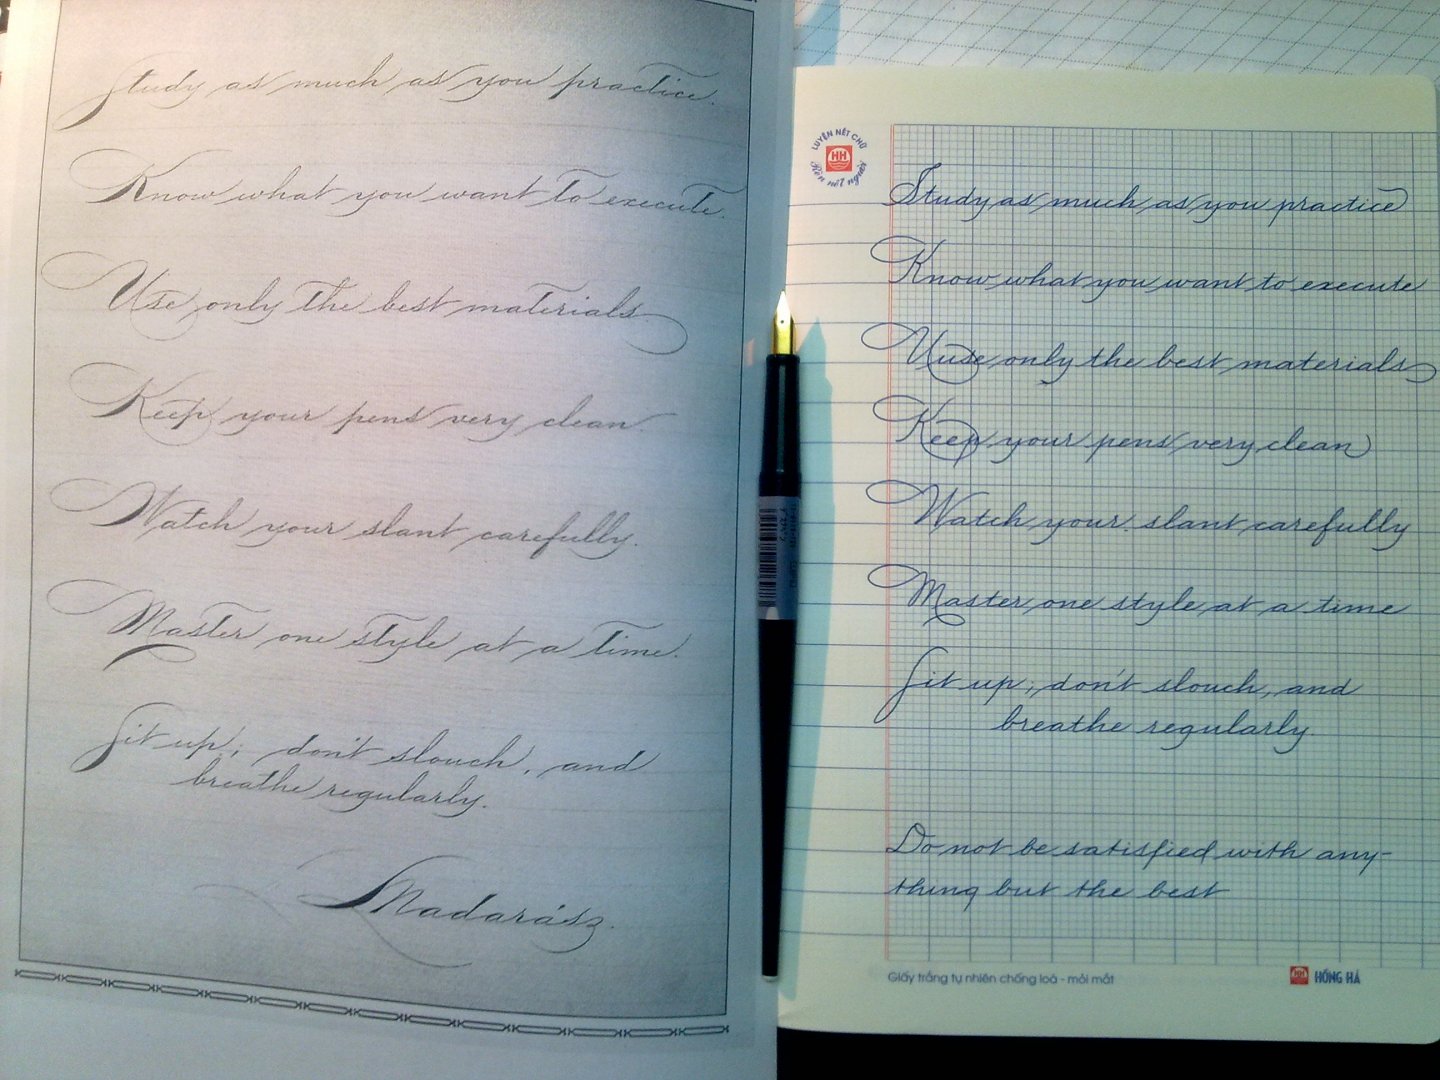 Study as much as you practice.
Know what you want to execute.
Use only the best materials.
Keep your pens very clean.
Watch your slant carefully.
Master one style at a time.
Sit up; don't slouch, and
breathe regularly.
Madarász.
LUYỆN NÉT CHỮ
Rèn nết người
HH
Study as much as you practice
Know what you want to execute
Uuse only the best materials
Keep your pens very clean
Watch your slant carefully
Master one style at a time
Sit up; don't slouch, and
breathe regularly.
Do not be satisfied with any-
thing but the best
Giấy trắng tự nhiên chống loá - mỏi mắt
HH HỒNG HÀ